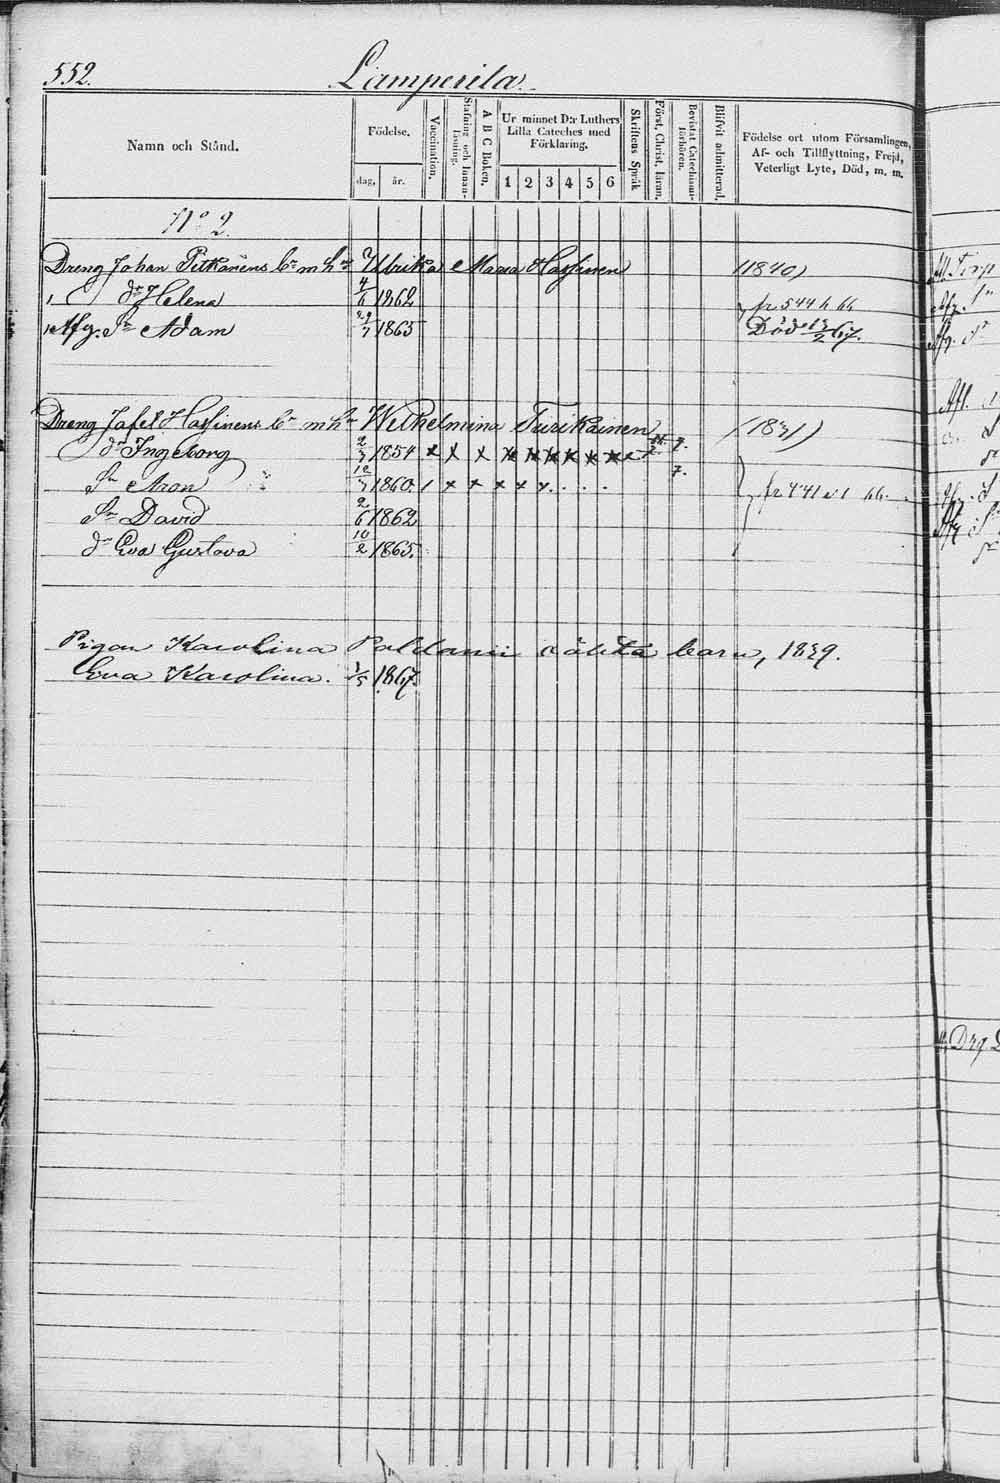 552.
Lamperila.
Namn och Stånd.
Födelse.
dag, år.
Vaccination.
Stafning och Innan-läsning.
A B C Boken.
Ur minnet D:r Luthers Lilla Cateches med Förklaring.
1 2 3 4 5 6
Skriftens Språk
Först. Christ. läran.
Bevistat Catechismi-förhören.
Blifvit admitterad.
Födelse ort utom Församlingen, Af- och Tillflyttning, Frejd, Veterligt Lyte, Död, m. m.
No 2.
Dreng Johan Pitkänens bn m h n Ulrika Maria Hassinen (1840)
dr Helena 4/6 1862 fr 544 h 66
Afg. Sn Adam 29/7 1865 Död 13/2 67.
Dreng Jafet Hassinens bn m hn Wilhelmina Turikainen (1831)
dr Ingeborg 2/3 1854
Sn Aron 12/3 1860. fr 441 66.
Sn David 2/6 1862
dr Eva Gustava 10/2 1865.
Pigan Karolina Paldanii oäkta barn, 1839.
Eva Karolina. 1/5 1867.